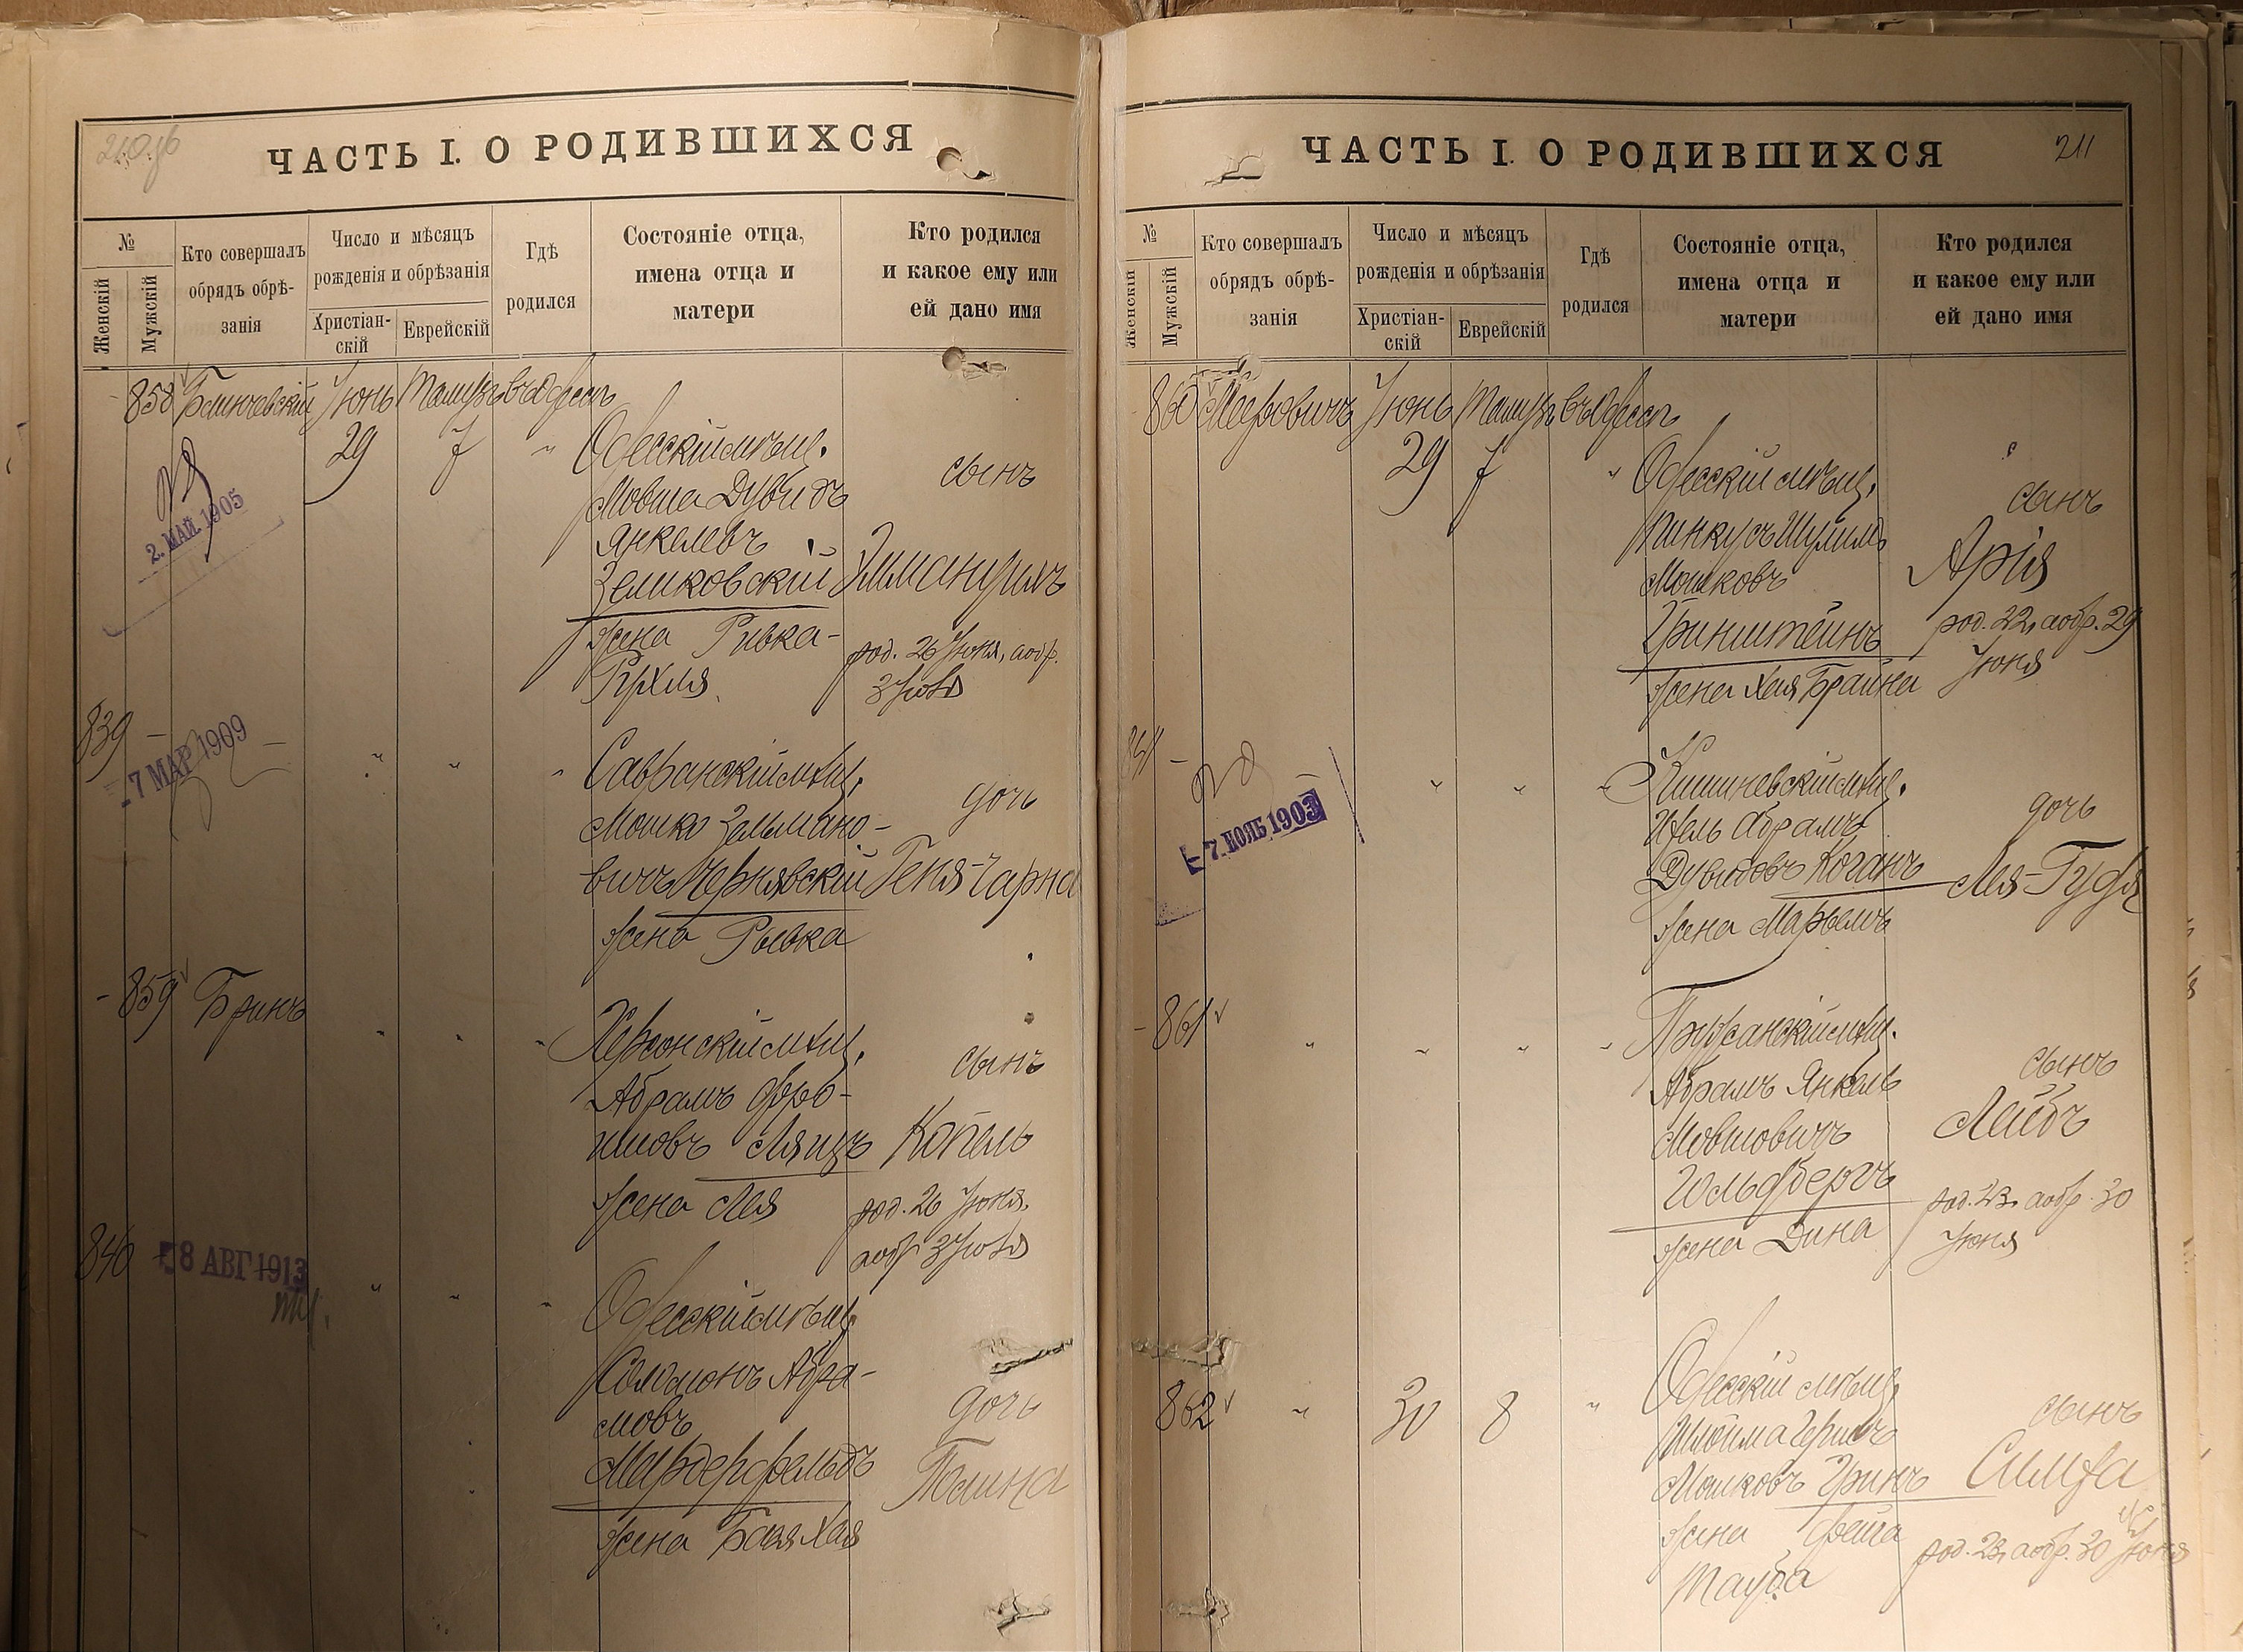 210 об
ЧАСТЬ I. О РОДИВШИХСЯ
№
Женскій
Мужскій
Кто совершалъ
обрядъ обрѣ-
занія
Число и мѣсяцъ
рожденія и обрѣзанія
Христіан-
скій
Еврейскій
Гдѣ
родился
Состояніе отца,
имена отца и
матери
Кто родился
и какое ему или
ей дано имя
858 Іюнь Тамузъ въ Одессѣ
29 7 " Одесскій мѣщ.
Мовша Дувидъ
Янкелевъ
сынъ
жена Ривка-
Рухля
Эммануилъ
род. 26 Іюня, а обр.
3 Іюля
2. МАЙ. 1905
839 - " " " Савранскій мѣщ.
Мошко Зельмано-
вичъ Чернявскій
жена Рывка
дочь
Геня-Чарна
-7 МАР 1909
859 Бринъ " " " Херсонскій мѣщ.
Абрамъ Фро-
имовъ Лянцъ
жена Лея
сынъ
Копель
род. 26 Іюня,
а обр 3 Іюля
840 - 8 АВГ 1913
" " " Одесскій мѣщ.
Соломонъ Абра-
мовъ
Мардерфельдъ
жена Бася Хая
дочь
Полина
ЧАСТЬ I. О РОДИВШИХСЯ
211
№
Женскій
Мужскій
Кто совершалъ
обрядъ обрѣ-
занія
Число и мѣсяцъ
рожденія и обрѣзанія
Христіан-
скій
Еврейскій
Гдѣ
родился
Состояніе отца,
имена отца и
матери
Кто родился
и какое ему или
ей дано имя
860 Мееровичъ Іюнь Тамузъ въ Одессѣ
29 7 " Одесскій мѣщ.
Пинкусъ Шулимъ
Мошковъ
Гринштейнъ
жена Хая Брайна
сынъ
Арія
род. 22, а обр. 29
Іюня
841 - " " " Кишиневскій мѣщ.
Абрамъ
Дувидовъ Коганъ
жена Марьемъ
дочь
Лея-Гудя
-7. НОЯБ 1903
861 " " " " Пружанскій мѣщ.
Абрамъ Янкель
Мовшовичъ
Гольдбергъ
жена Дина
сынъ
Лейбъ
род. 23, а обр. 30
Іюня
862 " 30 8 " Одесскій мѣщ.
Шлойма Гершъ
Мошковъ Гринъ
жена Фейга
Тауба
сынъ
Симха
род. 23, а обр. 30 Іюня